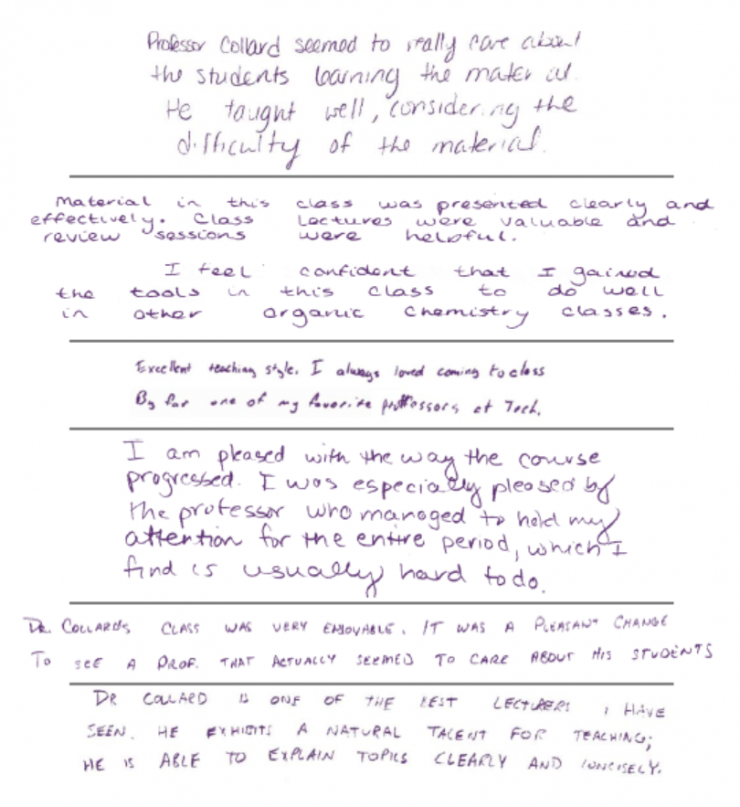 Professor Collard seemed to really care about
the students learning the material.
He taught well, considering the
difficulty of the material.
Material in this class was presented clearly and
effectively. Class lectures were valuable and
review sessions were helpful.
I feel confident that I gained
the tools in this class to do well
in other organic chemistry classes.
Excellent teaching style. I always loved coming to class
By far one of my favorite proffessors at Tech.
I am pleased with the way the course
progressed. I was especially pleased by
the professor who managed to hold my
attention for the entire period, which I
find is usually hard to do.
DR. COLLARD'S CLASS WAS VERY ENJOYABLE. IT WAS A PLEASANT CHANGE
TO SEE A PROF. THAT ACTUALLY SEEMED TO CARE ABOUT HIS STUDENTS
DR COLLARD IS ONE OF THE BEST LECTURERS I HAVE
SEEN. HE EXHIBITS A NATURAL TALENT FOR TEACHING;
HE IS ABLE TO EXPLAIN TOPICS CLEARLY AND CONCISELY.